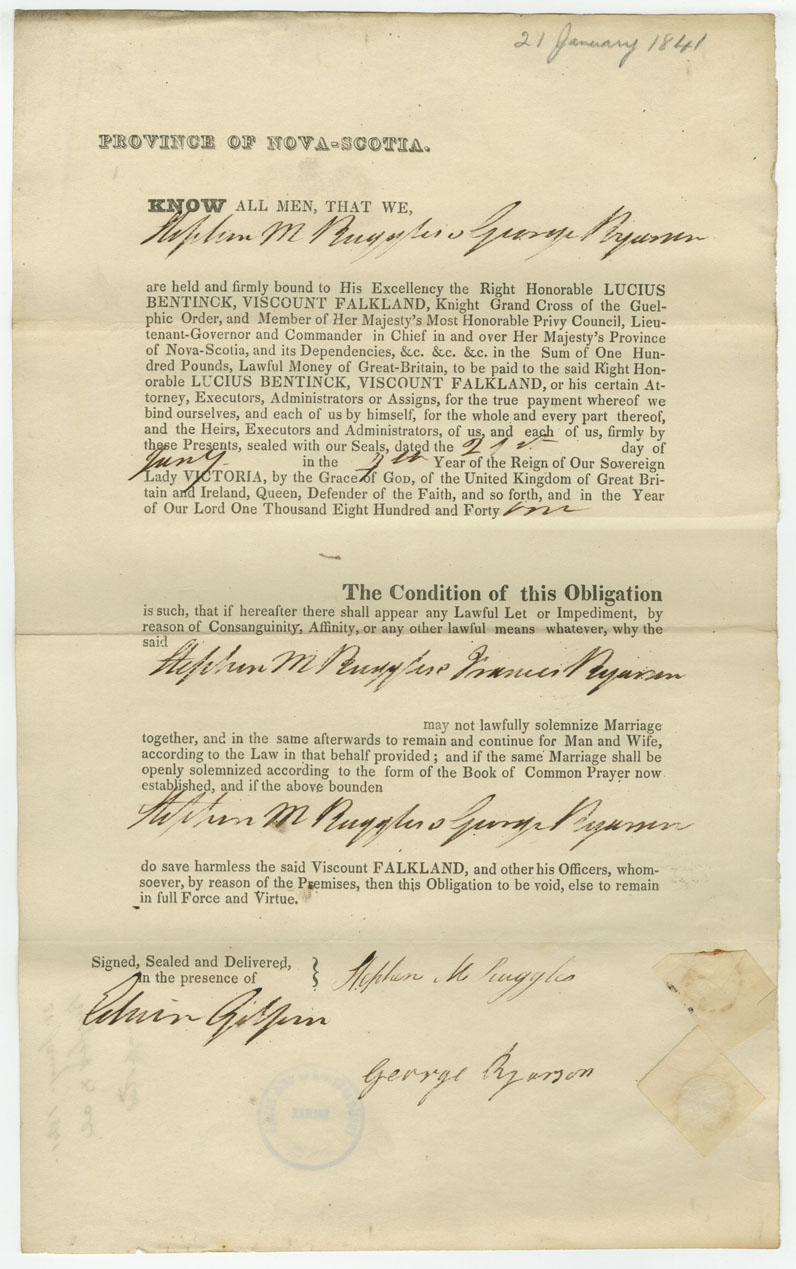 21 January 1841
PROVINCE OF NOVA-SCOTIA.
KNOW ALL MEN, THAT WE,
Stephen M Ruggles & George Ryerson
are held and firmly bound to His Excellency the Right Honorable LUCIUS
BENTINCK, VISCOUNT FALKLAND, Knight Grand Cross of the Guel-
phic Order, and Member of Her Majesty's Most Honorable Privy Council, Lieu-
tenant-Governor and Commander in Chief in and over Her Majesty's Province
of Nova-Scotia, and its Dependencies, &c. &c. &c. in the Sum of One Hun-
dred Pounds, Lawful Money of Great-Britain, to be paid to the said Right Hon-
orable LUCIUS BENTINCK, VISCOUNT FALKLAND, or his certain At-
torney, Executors, Administrators or Assigns, for the true payment whereof we
bind ourselves, and each of us by himself, for the whole and every part thereof,
and the Heirs, Executors and Administrators, of us, and each of us, firmly by
these Presents, sealed with our Seals, dated the 21st day of
Jany in the 4th Year of the Reign of Our Sovereign
Lady VICTORIA, by the Grace of GOD, of the United Kingdom of Great Bri-
tain and Ireland, Queen, Defender of the Faith, and so forth, and in the Year
of Our Lord One Thousand Eight Hundred and Forty one
The Condition of this Obligation
is such, that if hereafter there shall appear any Lawful Let or Impediment, by
reason of Consanguinity, Affinity, or any other lawful means whatever, why the
said
Stephen M Ruggles & Frances Ryerson
may not lawfully solemnize Marriage
together, and in the same afterwards to remain and continue for Man and Wife,
according to the Law in that behalf provided; and if the same Marriage shall be
openly solemnized according to the form of the Book of Common Prayer now
established, and if the above bounden
Stephen M Ruggles & George Ryerson
do save harmless the said Viscount FALKLAND, and other his Officers, whom-
soever, by reason of the Premises, then this Obligation to be void, else to remain
in full Force and Virtue.
Signed, Sealed and Delivered,
in the presence of
Stephen M Ruggles
Edwin Gilpin
George Ryerson